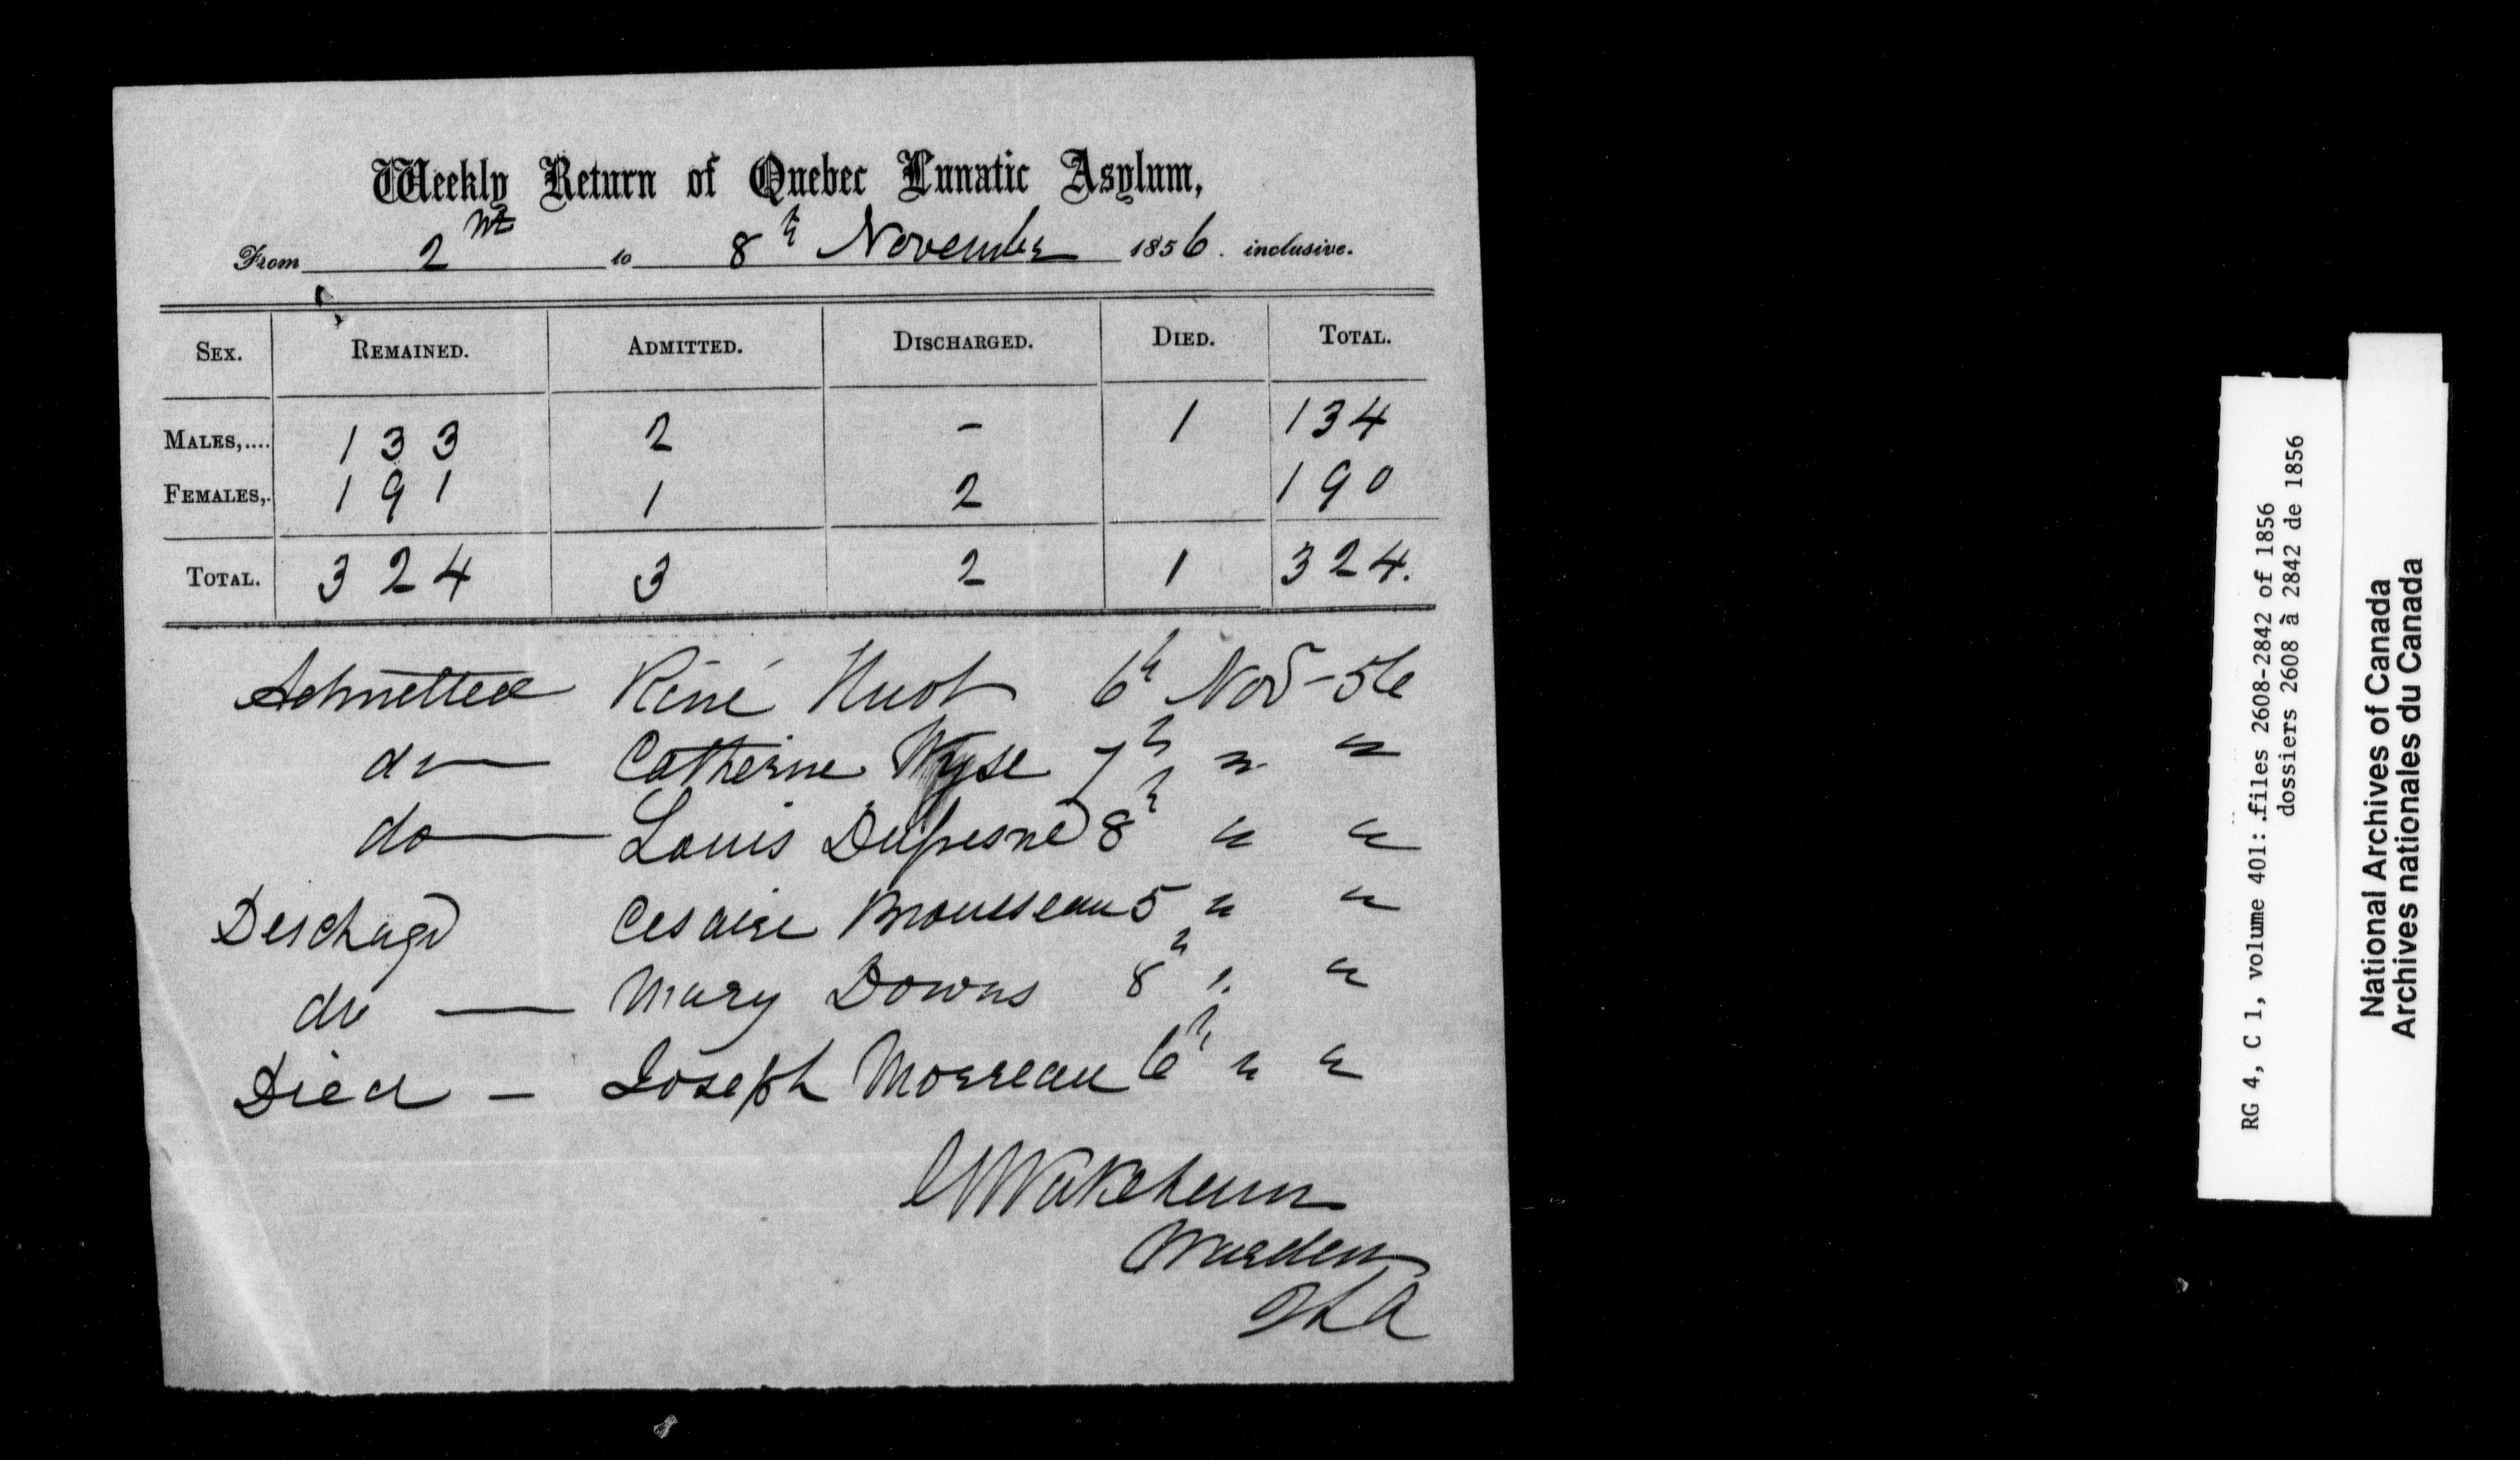 Weekly Return of Quebec Lunatic Asylum,
From 2nd to 8th November 1856. inclusive.
SEX. REMAINED. ADMITTED. DISCHARGED. DIED. TOTAL.
MALES,.... 133 2 - 1 134
FEMALES,. 191 1 2 190
TOTAL. 324 3 2 1 324.
Admitted René Huot 6h Nov - 56
do Catherine Wyse 7h " "
do Louis Dufresne 8h " "
Dischagd Cesaire Brousseau 5 " "
do Mary Downs 8h " "
Died - Joseph Morreau 6h " "
Wakeham
Warden
QLA
RG 4, C 1, volume 401: files 2608-2842 of 1856
dossiers 2608 à 2842 de 1856
National Archives of Canada
Archives nationales du Canada